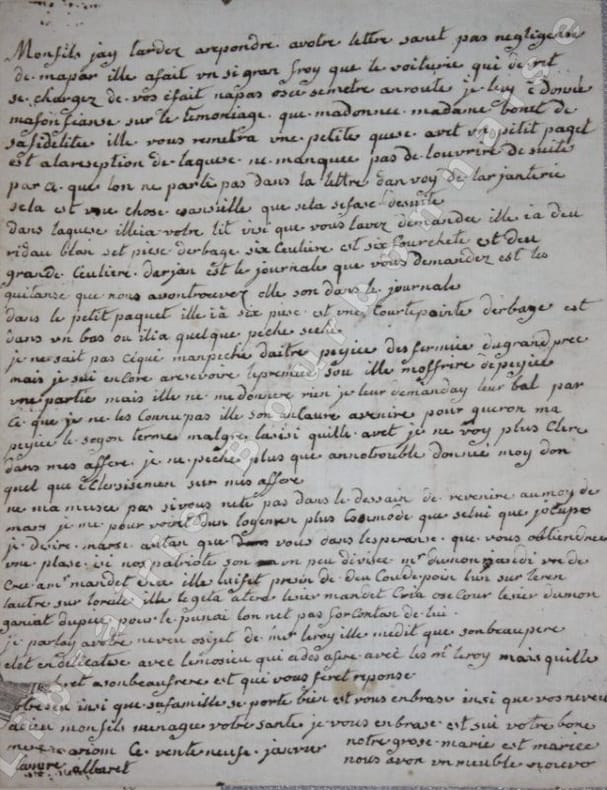 Monfils jay tardez arepondre avotre lettre sanet pas negligence
de mapar ille afait vn si gran froy que le voiturie qui devret
se chargez de vos éfait napas osée semetre anroute je luy é donnée
mafonfianse sur le temoniage que madonnée madame bonet de
safidelitée ille vous remetra vne petite quese avet vn petit paget
est alareseption de laquese ne manquee pas de louvrire de suite
par ce que lon ne parle pas dans la lettre danvoy de larjanterie
sela est vne chose esansielle que sela sefase desuite
dans laquese illia votre lit visi que vous lavez demandee ille ia deu
ridau blan set piese derbage six ceuliere est six fourchete est deu
grande ceuliere darjan est le journale que vous demandez est les
quitanse que nous avontroevez elle son dans le journale
dans le petit paquet ille ià six piese est vne courtepainte derbage est
dans vn bas ou ilia quelque pèche seche
je ne sait pas ciqué manpeche daitre peyiée des fermiée dugrand pree
mais je sui encore aresevoire lepremiée sou ille moffrire depeyiée
vne partie mais ille ne me donnere rien je leur demanday leur bal par
ce que je ne les connu pas ille son
peyiée le segon terme malgre quille avet je ne voy plus clere
dans mes affere je ne peche plus que annotrouble donnée moy don
quel que éclersisemen sur mes affere
ne ma musée pas sivous nete pas dans le dessain de revenire aumoy de
mars je me pour voiré dun logemen plus commode que selui que jocupe
je desire marse autan que vous dans lesperanse que vous obtiendree
vne plase ici nos patriote son vn peu divisée mr dumon jasdi vn de
cre amr mandet dia ille luifet presan de deu coudepoin lun sur leren
lautre sur loreile ille legita atere lesier mandet cria ose cour lesier dumon
gariat dupeu pour le punai lon net pas for contan de lui
je parlay avotre neveu osujet de mr leroy ille medit que sonbeaupere
elet endelicatese avec lemosieu qui ades afere avec les mr leroy mais quille
asonbeaufrere est qui vous feret reponse
votreseu insi que safamille se porte bien est vous enbrase insi que vos neveu
adieu monfils menagé votre sante je vous enbrase est sui votre bone
mere mariom ce venteneuse janvier notre grose marie est mariée
laurre albaret nous avon vn meuble nouvo
Librairie Bourbonnaise